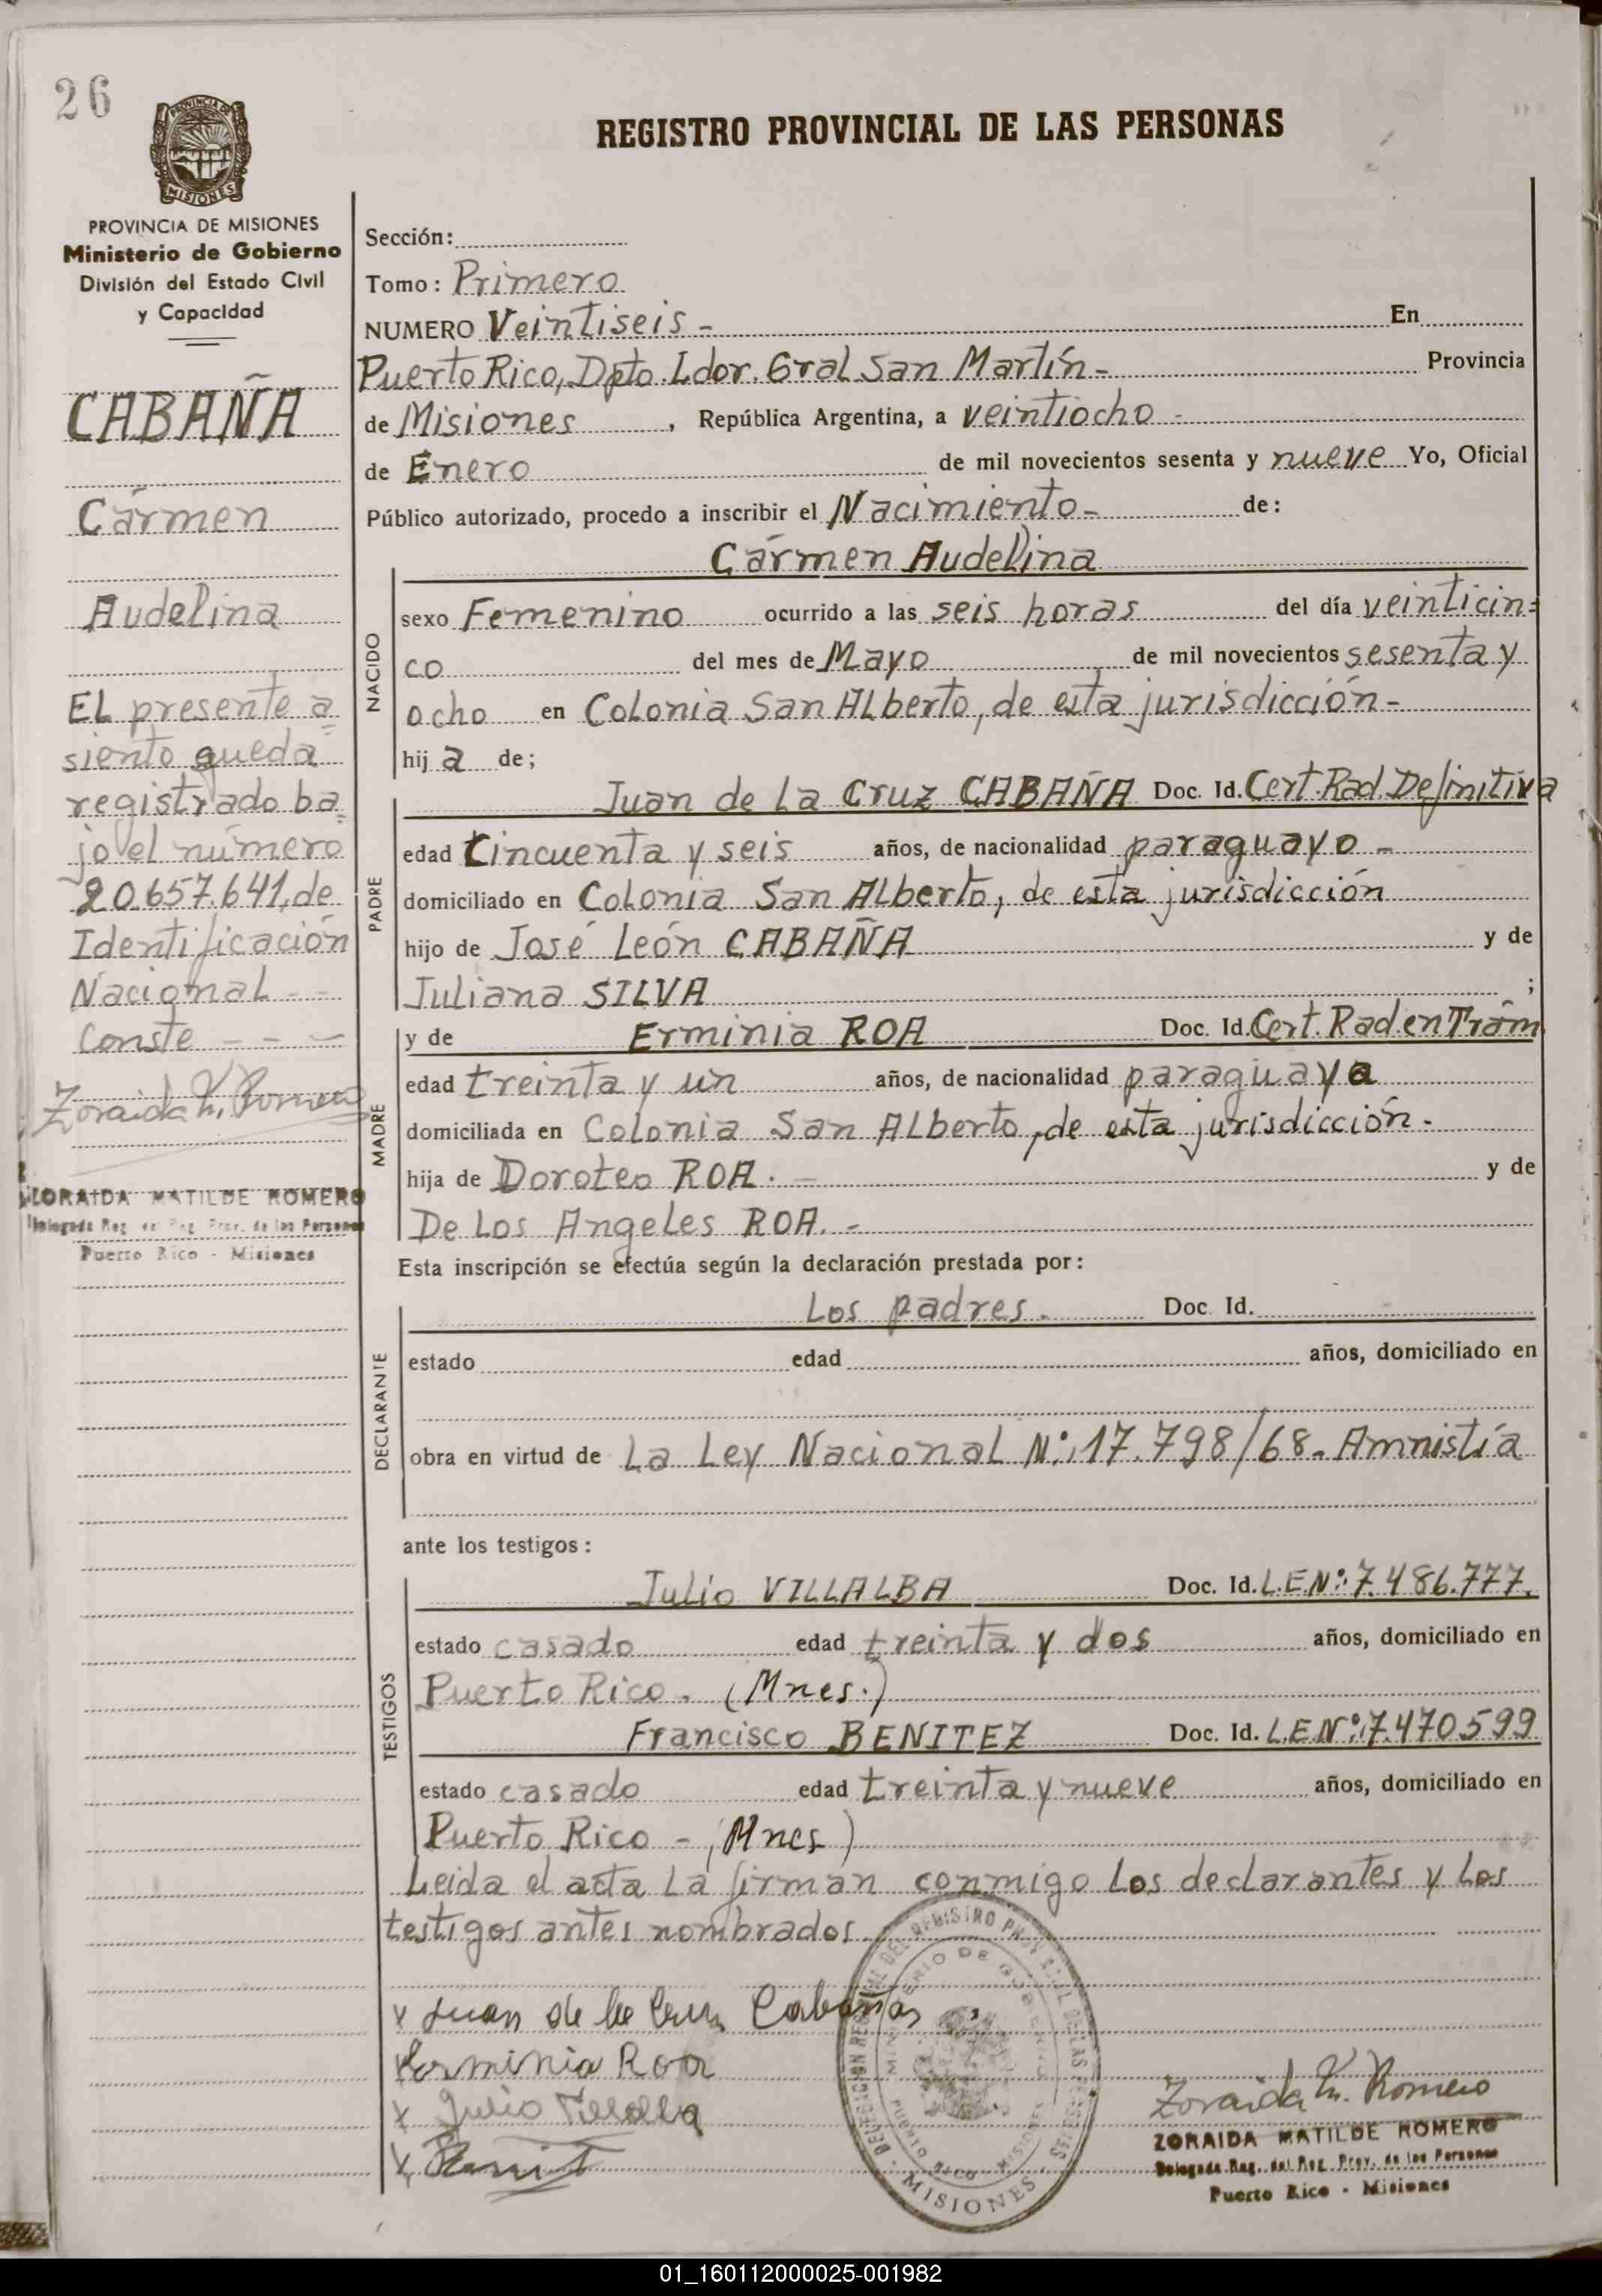 26
PROVINCIA DE
MISIONES
REGISTRO PROVINCIAL DE LAS PERSONAS
PROVINCIA DE MISIONES
Ministerio de Gobierno
División del Estado Civil
y Capacidad
CABAÑA
Cármen
Audelina
EL presente a
siento queda
registrado ba
jo el número
20.657.641, de
Identificación
Nacional - -
Conste - - -
Zoraida M. Romero
ZORAIDA MATILDE ROMERO
Delegada Reg. del Reg. Prov. de las Personas
Puerto Rico - Misiones
Sección:
Tomo: Primero
NUMERO Veintiseis - En
Puerto Rico, Dpto. Ldor. Gral San Martín - Provincia
de Misiones, República Argentina, a veintiocho -
de Enero de mil novecientos sesenta y nueve Yo, Oficial
Público autorizado, procedo a inscribir el Nacimiento - de:
Cármen Audelina
NACIDO
sexo Femenino ocurrido a las seis horas del día veinticin=
co del mes de Mayo de mil novecientos sesenta y
ocho en Colonia San ALberto, de esta jurisdicción -
hij a de;
Juan de La Cruz CABAÑA Doc. Id. Cert. Rad. Definitiva
PADRE
edad cincuenta y seis años, de nacionalidad paraguayo -
domiciliado en Colonia San ALberto, de esta jurisdicción
hijo de José León CABAÑA y de
Juliana SILVA ;
y de Erminia ROA Doc. Id. Cert. Rad en Trám
MADRE
edad treinta y un años, de nacionalidad paraguaya
domiciliada en Colonia San ALberto, de esta jurisdicción -
hija de Doroteo ROA. - y de
De Los Angeles ROA. -
Esta inscripción se efectúa según la declaración prestada por:
Los padres. Doc. Id. -
DECLARANTE
estado edad años, domiciliado en
obra en virtud de La Ley Nacional N°: 17.798/68- Amnistía
ante los testigos:
Julio VILLALBA Doc. Id. L.E.N°: 7.486.777.
TESTIGOS
estado casado edad treinta y dos años, domiciliado en
Puerto Rico. (Mnes.)
Francisco BENITEZ Doc. Id. L.E.N°: 7.470.599
estado casado edad treinta y nueve años, domiciliado en
Puerto Rico - (Mnes)
Leida el acta La firman conmigo Los declarantes y Los
testigos antes nombrados.
x Juan de la Cruz Cabañas
x Erminia Roa
x Julio Villalba
x
MINISTERIO DE GOBIERNO
PUERTO RICO - MISIONES
MISIONES
Zoraida M. Romero
ZORAIDA MATILDE ROMERO
Delegada Reg. del Reg. Prov. de las Personas
Puerto Rico - Misiones
01_160112000025-001982